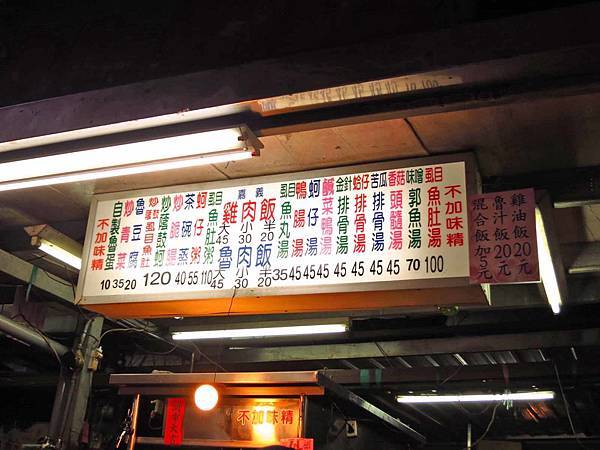 不加味精
自製魯蛋 10
炒菜 35
魯豆腐 20
120
炒脆腸
茶碗蒸 40
蚵仔粥 55
虱目魚肚粥 110
嘉義
雞肉飯
大45 小30 半20
魯肉飯
大45 小30 半20
虱目魚丸湯 35
鴨腸湯 45
蚵仔湯 45
鹹菜鴨湯 45
金針排骨湯 45
蛤仔排骨湯 45
苦瓜排骨湯 45
香菇頭髓湯 45
味噌郭魚湯 70
虱目魚肚湯 100
不加味精
雞油飯20元
魯汁飯20元
混合飯加5元
不加味精